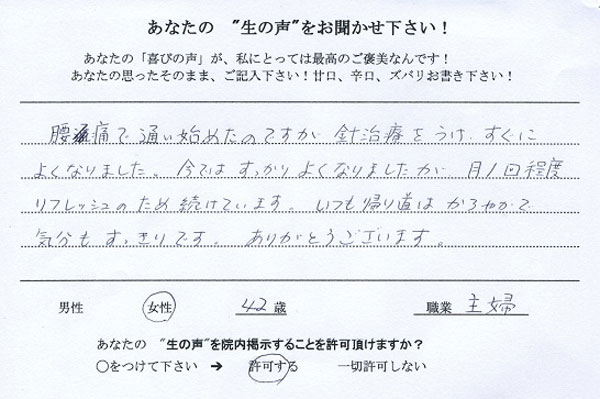 あなたの　"生の声"をお聞かせ下さい！
あなたの「喜びの声」が、私にとっては最高のご褒美なんです！
あなたの思ったそのまま、ご記入下さい！甘口、辛口、ズバリお書き下さい！
腰痛で通い始めたのですが 針治療をうけ、すぐに
よくなりました。今では すっかり よくなりましたが、月1回程度
リフレッシュのため 続けています。いつも帰り道は かろやかで
気分も すっきりです。 ありがとうございます。
男性　女性　42歳　職業 主婦
あなたの　"生の声"を院内掲示することを許可頂けますか？
○をつけて下さい ➔ 許可する　一切許可しない